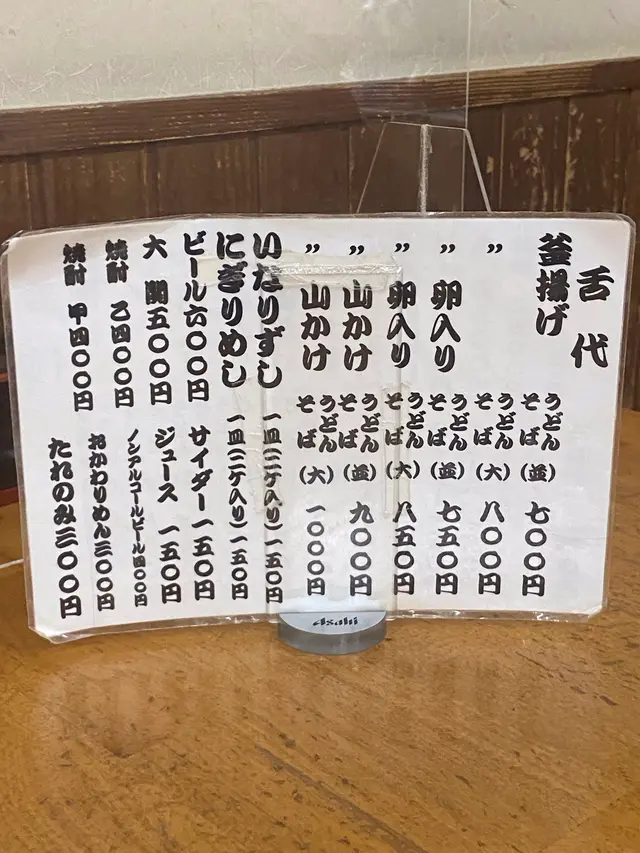 舌代
釜揚げ うどん そば (並) 七〇〇円
〃 うどん そば (大) 八〇〇円
〃 卵入り うどん そば (並) 七五〇円
〃 卵入り うどん そば (大) 八五〇円
〃 山かけ うどん そば (並) 九〇〇円
〃 山かけ うどん そば (大) 一〇〇〇円
いなりずし 一皿(二ケ入り)一五〇円
にぎりめし 一皿(二ケ入り)一五〇円
ビール六〇〇円 サイダー一五〇円
大関五〇〇円 ジュース一五〇円
焼酎 乙四〇〇円 ノンアルコールビール四〇〇円
焼酎 甲四〇〇円 おかわりめん三〇〇円
たれのみ三〇〇円
Asahi